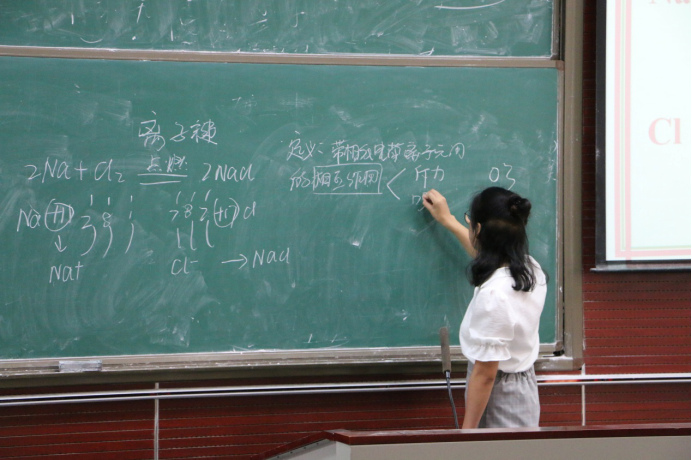 离子键
点燃
2Na+Cl₂ 2NaCl
定义：带相反电荷离子之间
的相互作用 < 斥力
Na +11 2 8 1 7 8 2 +17 Cl
Na⁺ Cl⁻ →NaCl
Cl